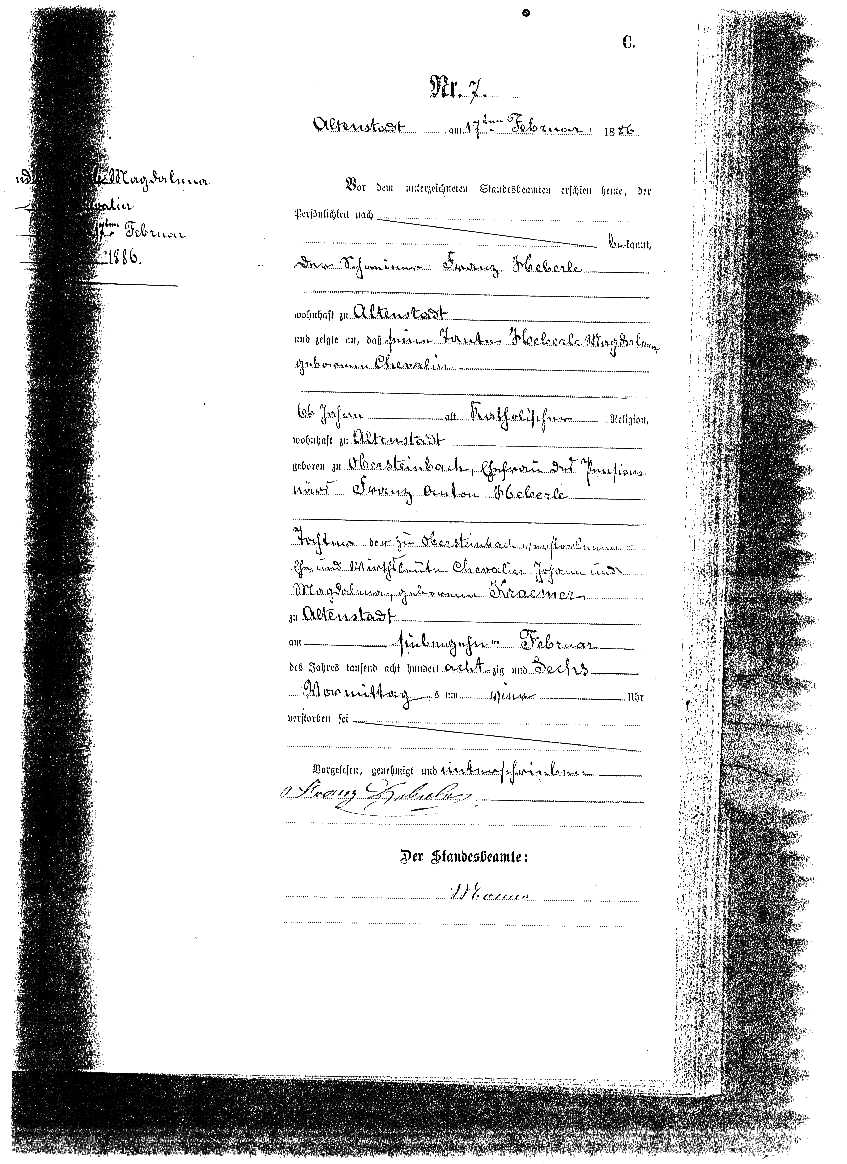 C.
Nr. 7.
Altenstadt am 17ten Februar 1886
Magdalena
Februar
1886.
Vor dem unterzeichneten Standesbeamten erschien heute, der
Persönlichkeit nach
kannt,
der Schreiner Franz Heberle
wohnhaft zu Altenstadt
und zeigte an, daß seine Tante Heberle Magdalena
geborene Chevalier
66 Jahre alt Katholischer Religion,
wohnhaft zu Altenstadt
geboren zu Obersteinbach, Ehefrau des Pensio-
närs Franz Anton Heberle
Tochter der zu Obersteinbach verstorbenen
Ehe und Wirthsleute Chevalier Johann und
Magdalena, geborene Kraemer
zu Altenstadt
am siebenzehn ten Februar
des Jahres tausend acht hundert acht zig und Sechs
Vormittag s um Uhr
verstorben sei
Vorgelesen, genehmigt und unterschrieben
Franz Heberle
Der Standesbeamte: